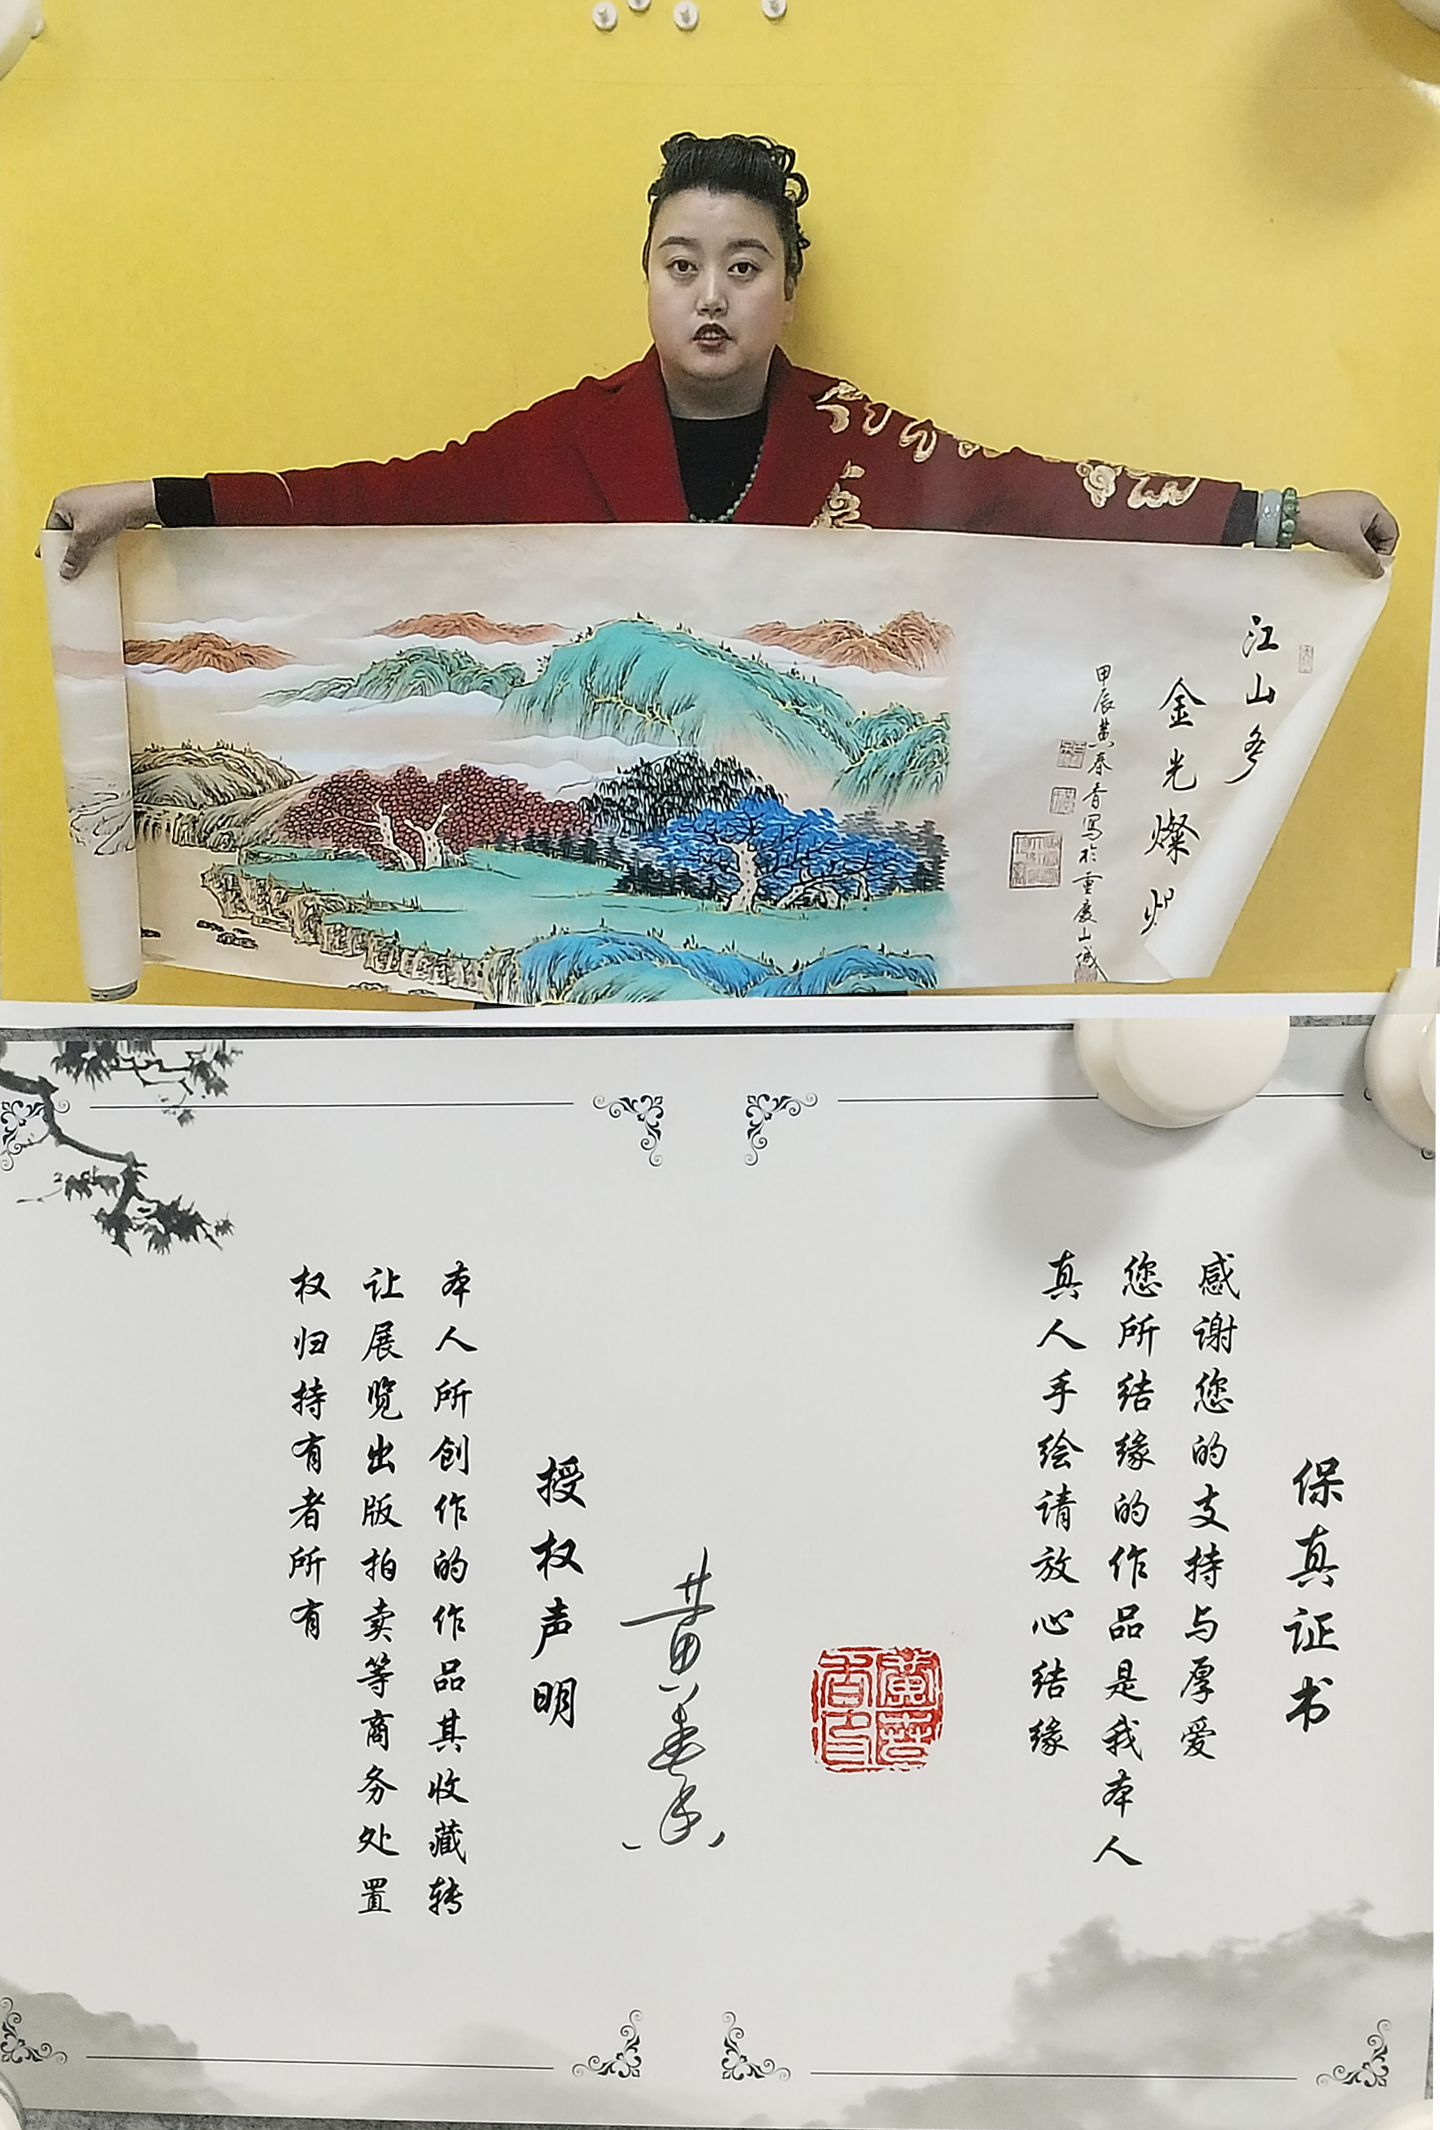 江山多
金光灿烂
甲辰黄春香写于重庆山城
保真证书
感谢您的支持与厚爱
您所结缘的作品是我本人
真人手绘请放心结缘
黄春香印
黄春香
授权声明
本人所创作的作品其收藏转
让展览出版拍卖等商务处置
权归持有者所有